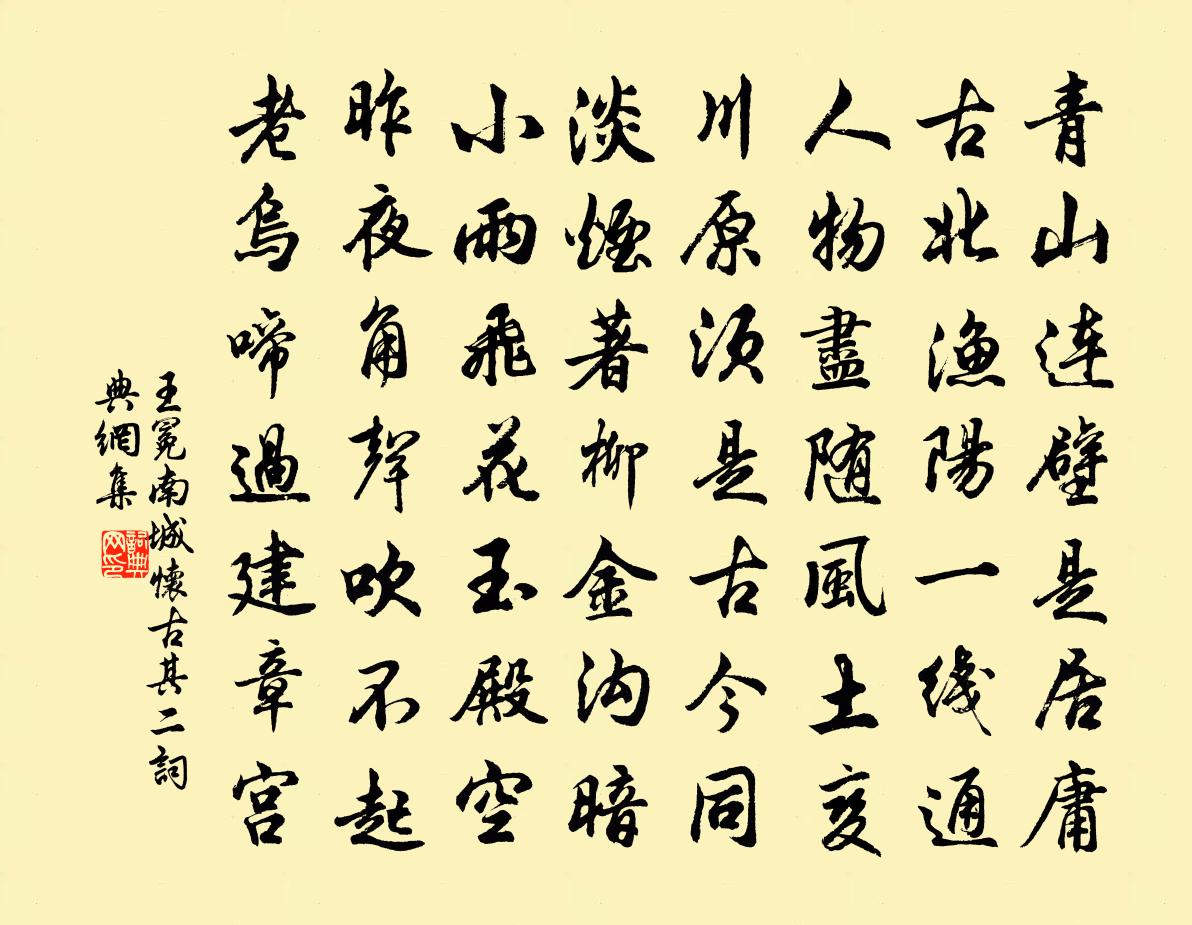 青山連壁是居庸
古北漁陽一线通
人物盡随風土変
川原須是古今同
淡煙著柳金沟暗
小雨飛花玉殿空
昨夜角聲吹不起
老烏啼過建章宮
王冕南城懷古其二詞
典網集
詞典
网印